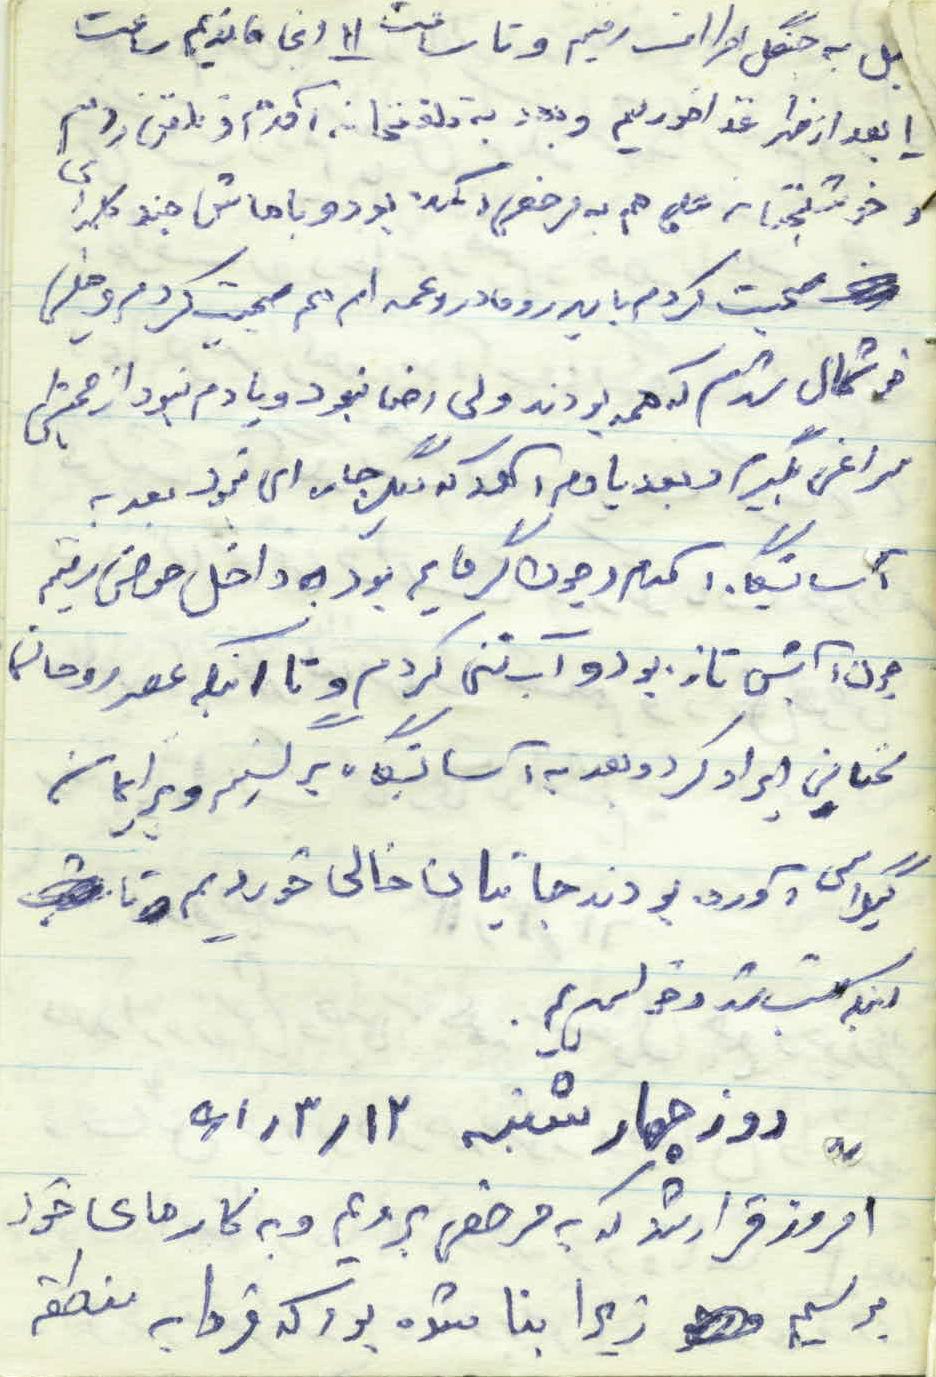 پل به جنگل رفتیم و تا ساعت ۱۱ آنجا ماندیم ساعت
۱ بعد از ظهر غذا خوردیم و بعد به تلفنخانه آمدم و تلفن زدم
و خوشبختانه علی هم به مرخصی آمده بود و باهاش چند کلمه‌ای
صحبت کردم با پدر و مادر و عمه ام هم صحبت کردم و خیلی
خوشحال شدم که همه بودند ولی رضا نبود و یادم نبود از
سراغی بگیرم و بعد یادم آمد که دیگر چاره ای نبود بعد به
آسایشگاه آمدم و چون گرمایم بود به داخل حوض رفتم
چون آبش تازه بود و آب تنی کردم و تا اینکه عصر روحانی
سخنانی ایراد کرد و بعد به آسایشگاه برگشتیم و برایمان
گیلاس آورده بودند جایتان خالی خوردیم و تا
اینکه شب شد و خوابیدیم .
روز چهارشنبه ۶۱/۳/۱۲
امروز قرار شد که به مرخصی برویم و به کارهای خود
برسیم زیرا بنا شده بود که فردا به منطقه